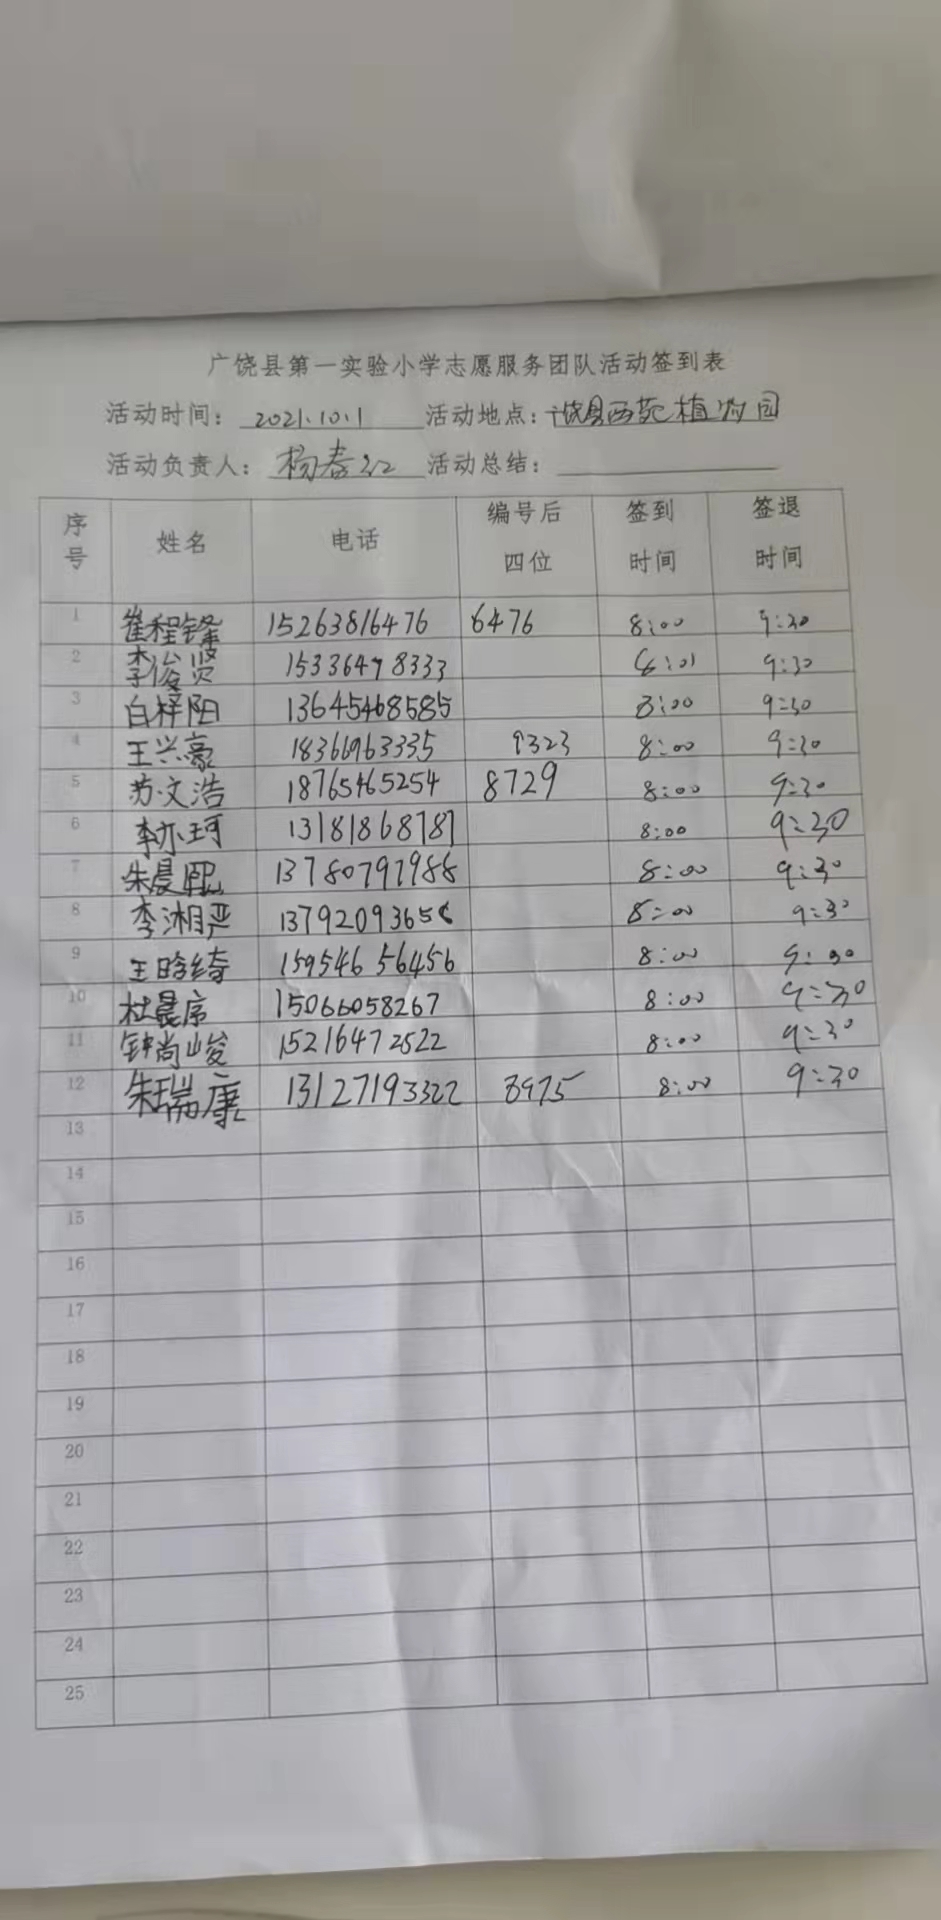 广饶县第一实验小学志愿服务团队活动签到表
活动时间：2021.10.1 活动地点：广饶县西苑植物园
活动负责人：杨春红 活动总结：
序号 姓名 电话 编号后四位 签到时间 签退时间
1 崔程锋 15263816476 6476 8:00 9:30
2 李俊贤 15336478333 8:01 9:30
3 白梓阳 13645468585 8:00 9:30
4 王兴豪 18366963335 9323 8:00 9:30
5 苏文浩 18765465254 8729 8:00 9:30
6 李亦珂 13181868787 8:00 9:30
7 朱晨熙 13780797988 8:00 9:30
8 李湘严 13792093656 8:00 9:30
9 王晗绮 15954656456 8:00 9:30
10 杜晨序 15066058267 8:00 9:30
11 钟尚峻 15216472522 8:00 9:30
12 朱瑞康 13127193322 8975 8:00 9:30
13
14
15
16
17
18
19
20
21
22
23
24
25